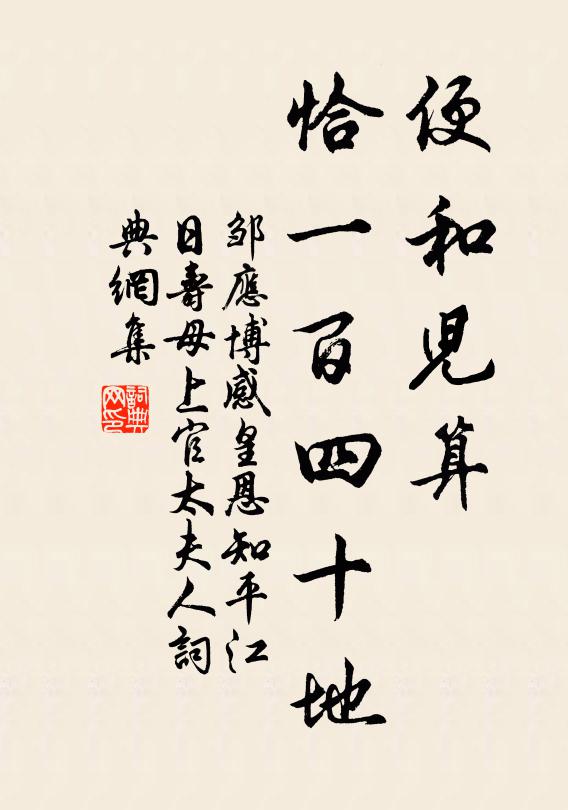 便和児算
恰一百四十地
邹應博感皇恩知平江
日壽母上官太夫人詞
典網集
詞典
网印